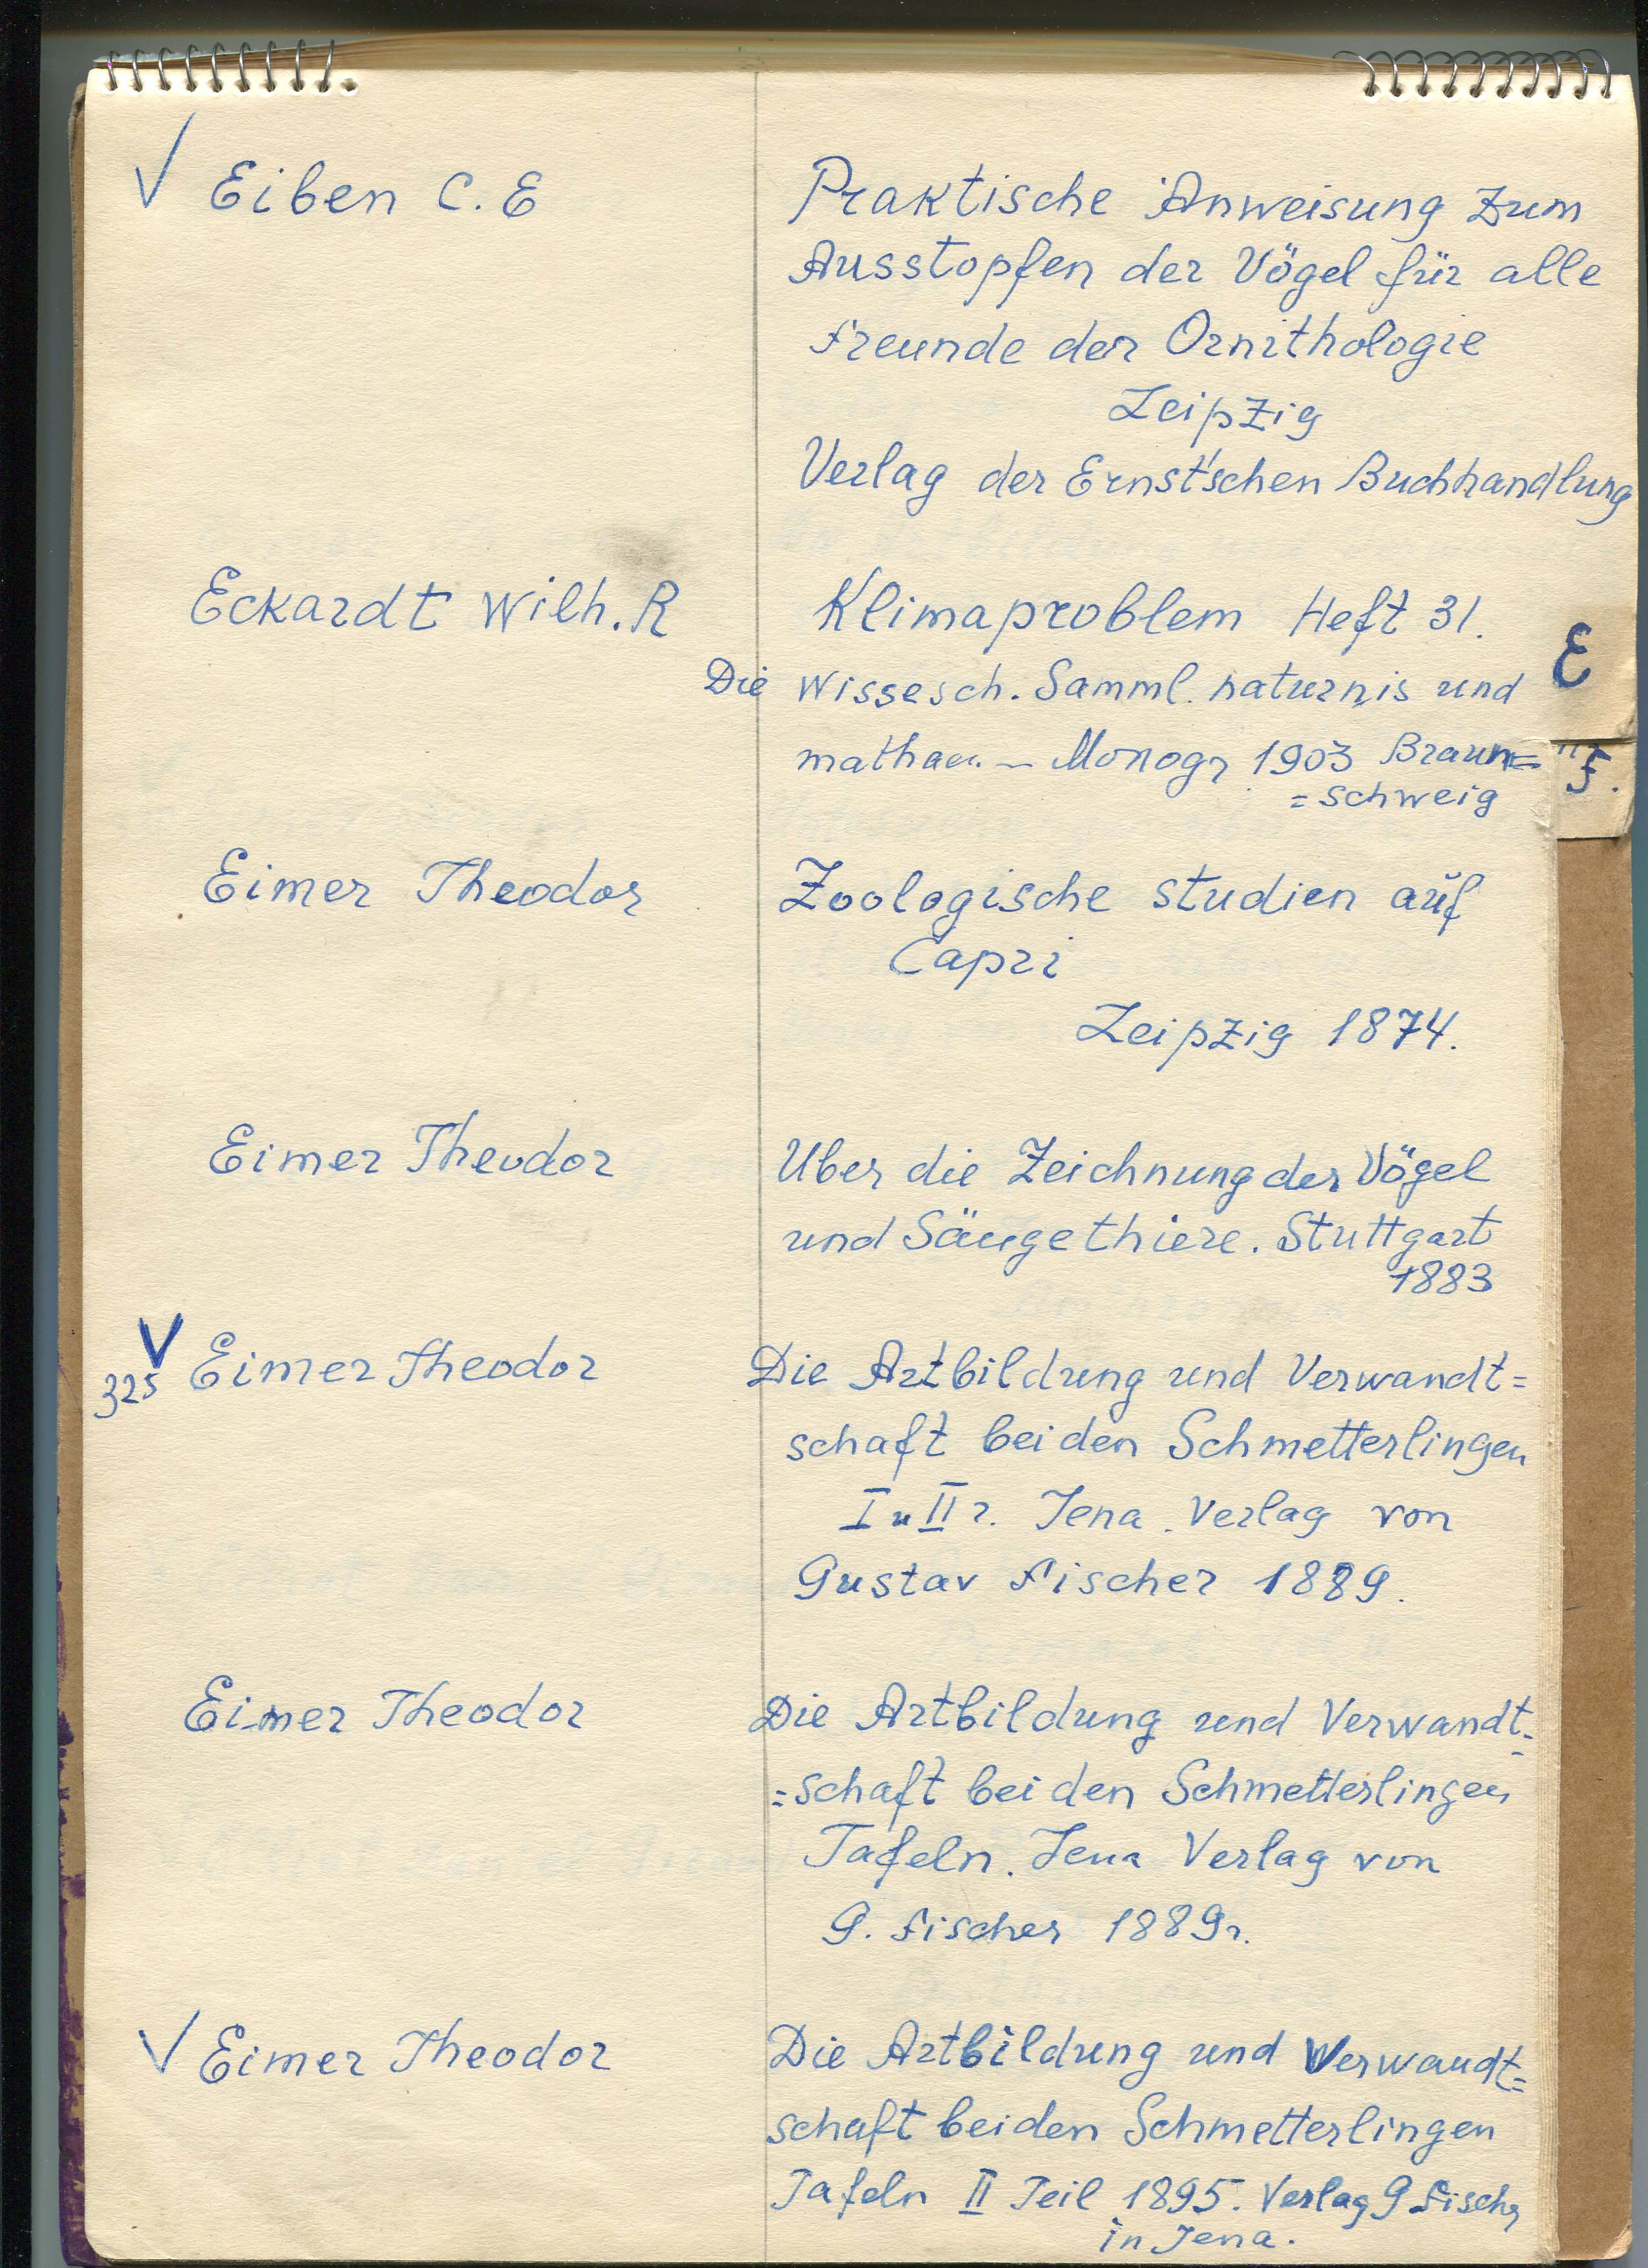 √ Eiben C. E Praktische Anweisung zum
Ausstopfen der Vögel für alle
Freunde der Ornithologie
Leipzig
Verlag der Ernst'schen Buchhandlung
Eckardt Wilh. R Klimaproblem Heft 31.
Die Wissesch. Samml. naturnis und
E
mathem. – Monogr 1903 Braun=
=schweig
F.
Eimer Theodor Zoologische Studien auf
Capri
Leipzig 1874.
Eimer Theodor Uber die Zeichnung der Vögel
und Säugethiere. Stuttgart
1883
V
325 Eimer Theodor Die Artbildung und Verwandt=
schaft bei den Schmetterlingen
I u II r. Jena. Verlag von
Gustav Fischer 1889.
Eimer Theodor Die Artbildung und Verwandt=
=schaft bei den Schmetterlingen
Tafeln. Jena Verlag von
G. Fischer 1889 r.
√ Eimer Theodor Die Artbildung und Verwandt=
schaft bei den Schmetterlingen
Tafeln II Teil 1895. Verlag G Fischer
in Jena.